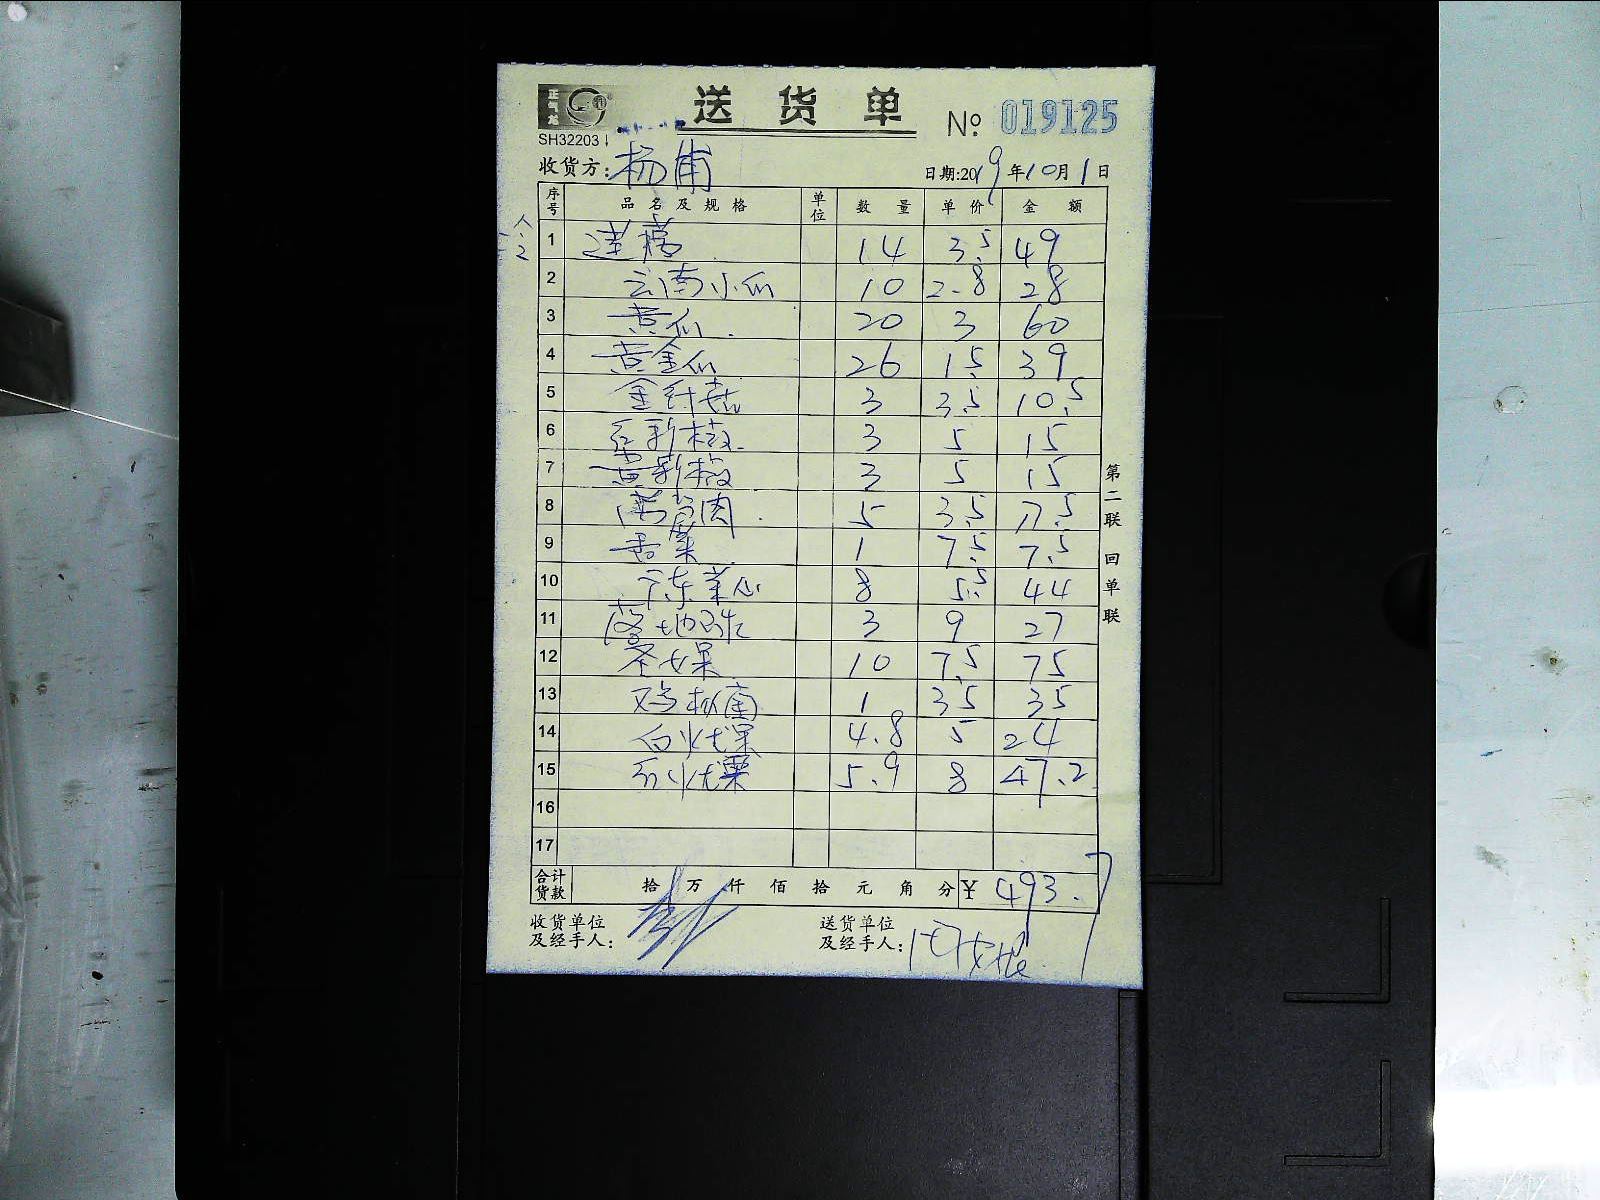 正气龙
送货单
№ 019125
SH32203
收货方: 杨甫
日期:2019年10月1日
序号 品名及规格 单位 数量 单价 金额
1 莲藕 14 3.5 49
2 云南小瓜 10 2.8 28
3 黄瓜 20 3 60
4 黄金瓜 26 1.5 39
5 金针菇 3 3.5 10.5
6 红彩椒 3 5 15
7 黄彩椒 3 5 15
8 5 3.5 17.5
9 香菜 1 7.5 7.5
10 广东菜心 8 5.5 44
11 3 9 27
12 圣女果 10 7.5 75
13 鸡枞菌 1 35 35
14 白火龙果 4.8 5 24
15 红火龙果 5.9 8 47.2
16
17
合计货款 拾 万 仟 佰 拾 元 角 分 ¥ 493.7
收货单位
及经手人:
送货单位
及经手人:
第二联 回单联